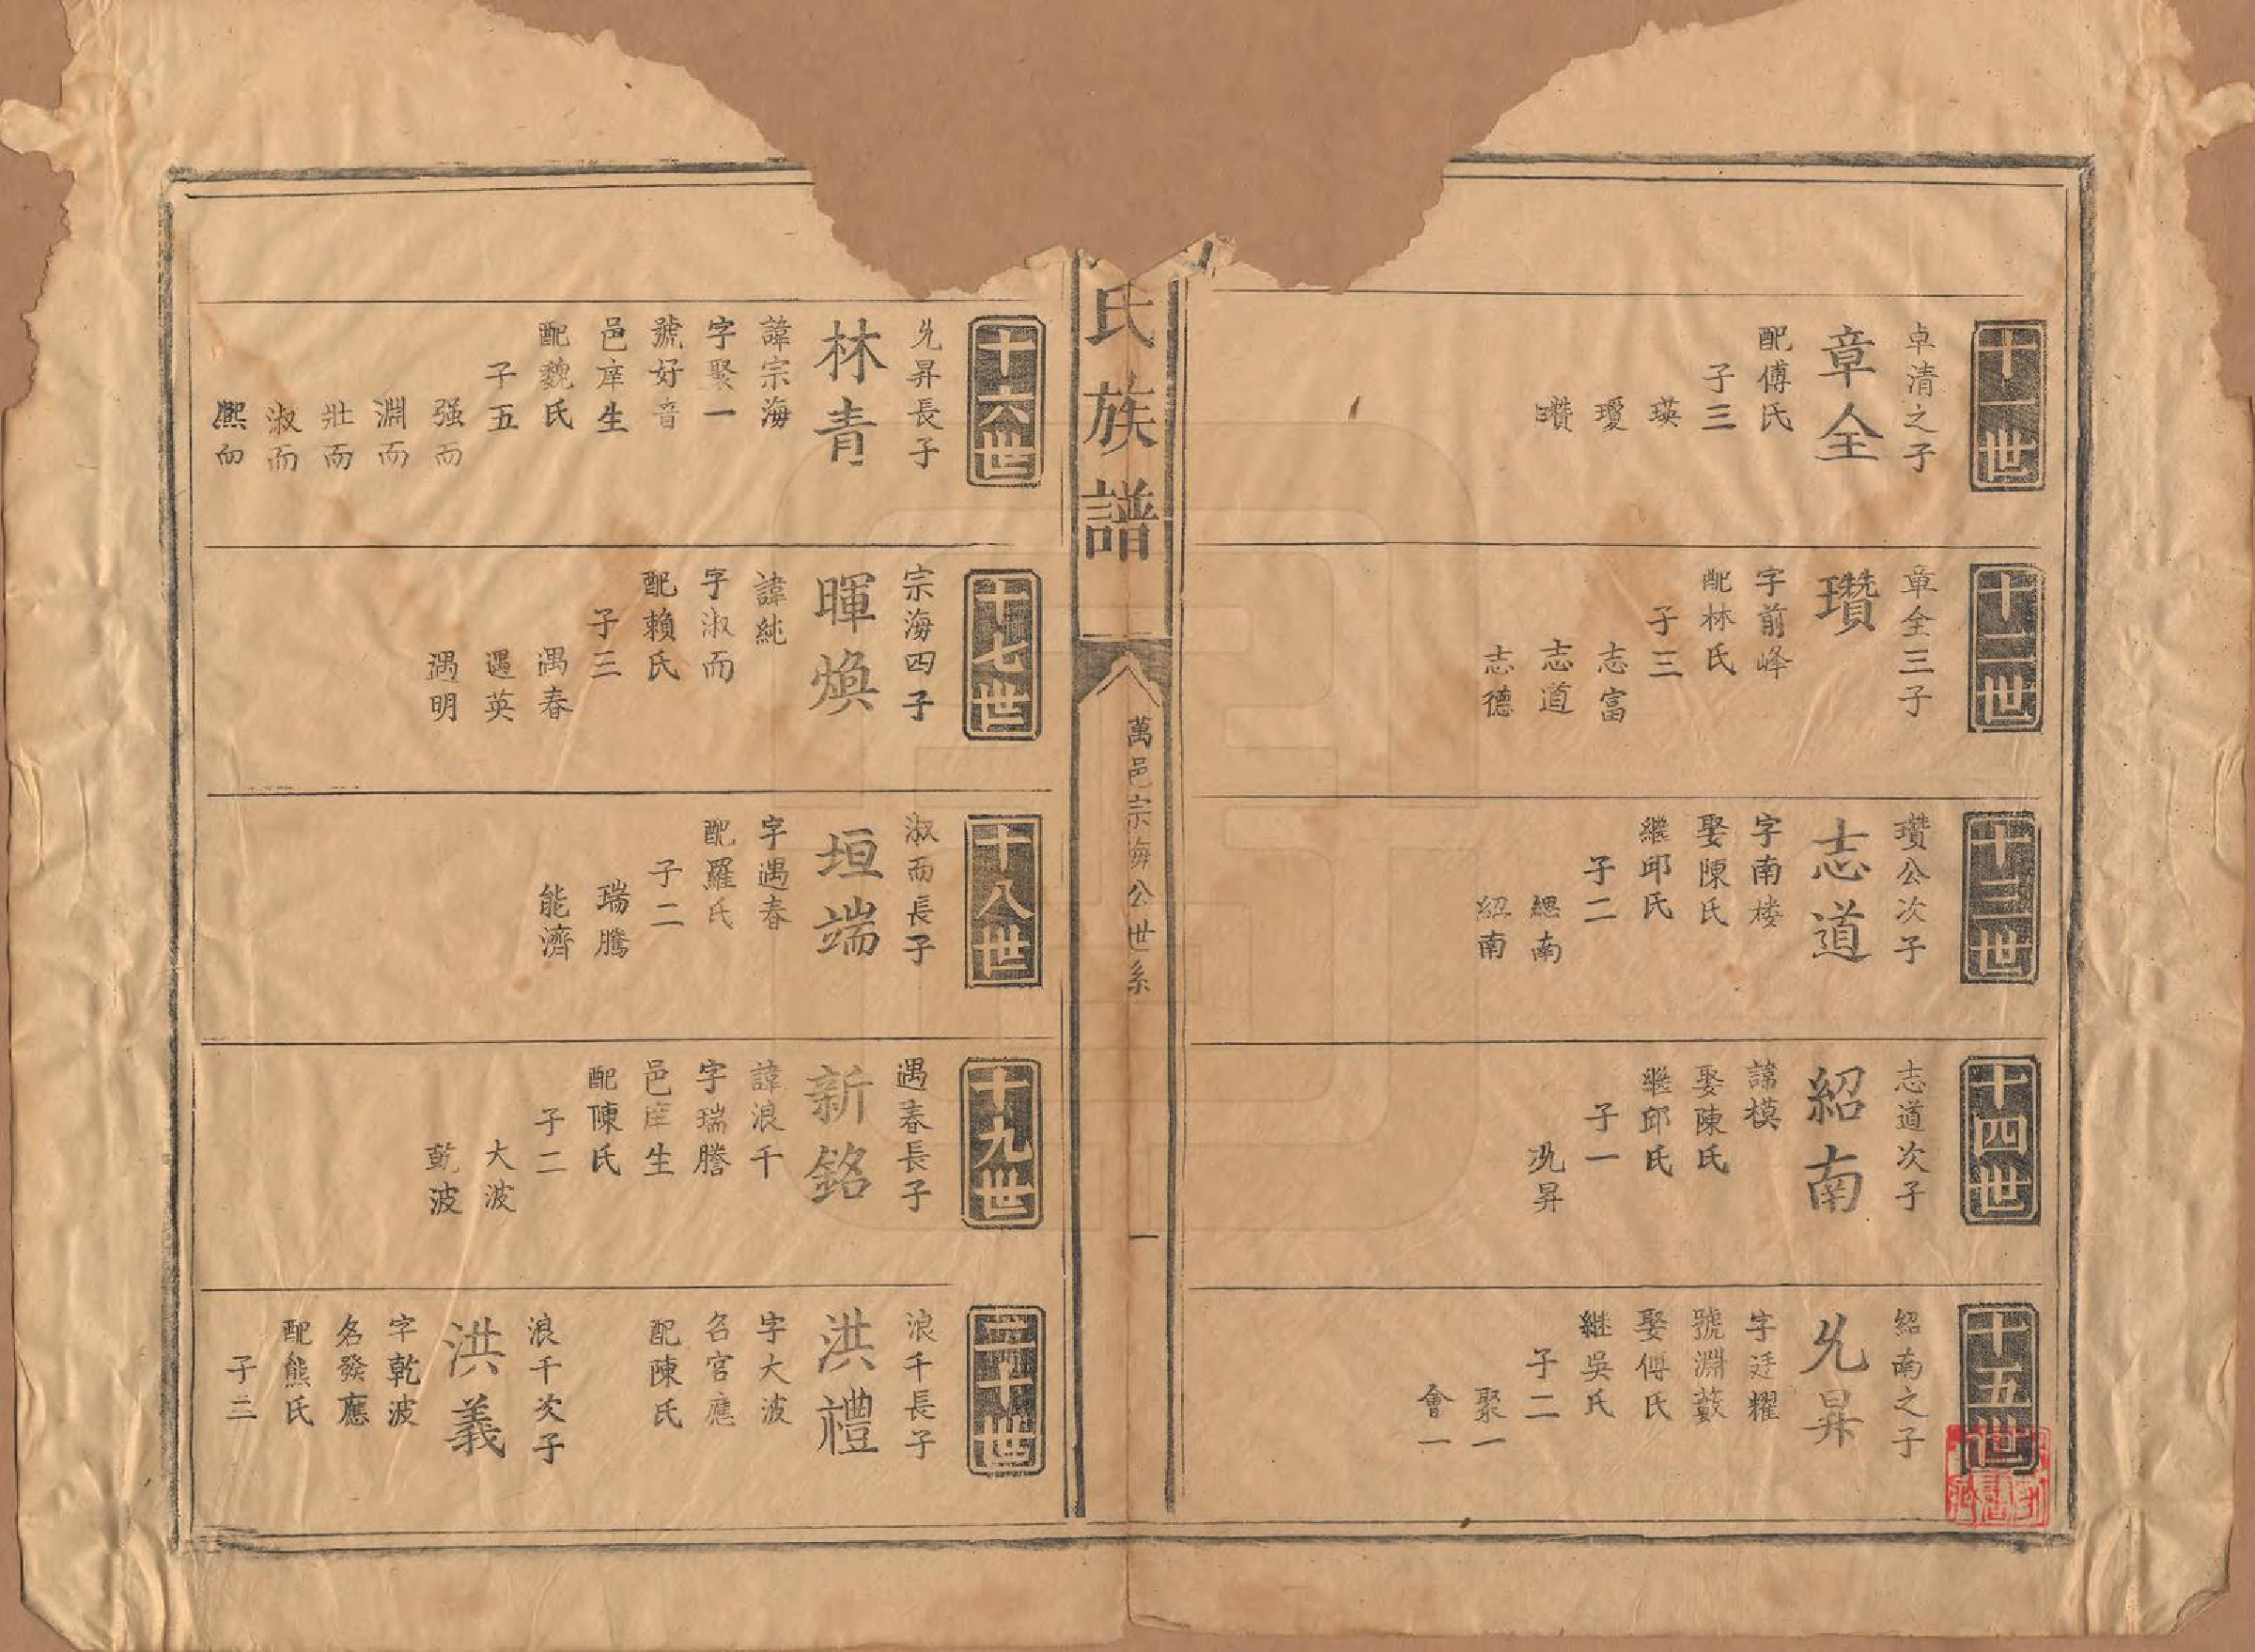 十一世
卓清之子
章全
配傅氏
子三
瑛
瓊
瓚
十二世
章全三子
瓚
字前峰
配林氏
子三
志富
志道
志德
十三世
瓚公次子
志道
字南楼
娶陳氏
繼邱氏
子二
緦南
紹南
十四世
志道次子
紹南
諱模
娶陳氏
繼邱氏
子一
允昇
十五世
紹南之子
允昇
字廷耀
號淵藪
娶傅氏
继吳氏
子二
聚一
會一
氏族譜
萬邑宗海公世系
一
十六世
允昇長子
林青
諱宗海
字聚一
號好音
邑庠生
配魏氏
子五
强而
淵而
壯而
淑而
熈而
十七世
宗海四子
暉煥
諱純
字淑而
配賴氏
子三
遇春
遇英
遇明
十八世
淑而長子
垣端
字遇春
配羅氏
子二
瑞騰
能濟
十九世
遇春長子
新銘
諱浪千
字瑞謄
邑庠生
配陳氏
子二
大波
乾波
二十世
浪千長子
洪禮
字大波
名官應
配陳氏
浪千次子
洪義
字乾波
名發應
配熊氏
子三